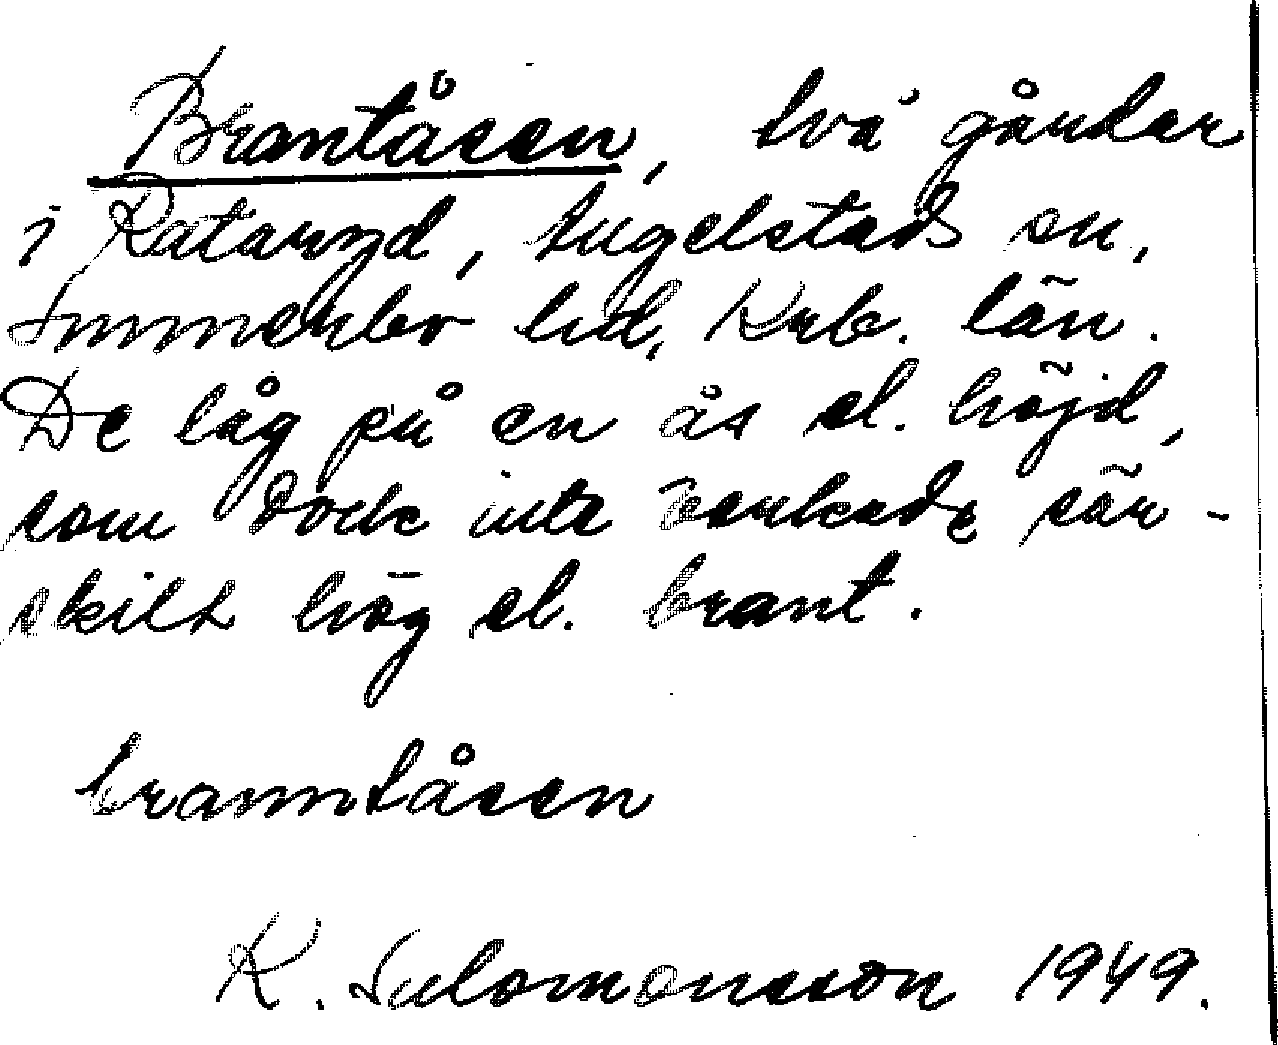 Brantåsen, två gårdar
i Rataryd, Angelstads sn,
Sunnerbo hd, Krb. län.
De låg på en ås el. höjd,
som dock inte verkade sär-
skilt hög el. brant.
branntåsen
K. Salomonsson 1949.